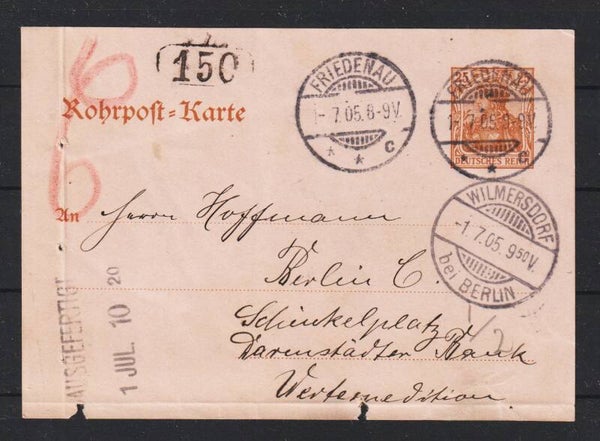 150
Rohrpost=Karte
FRIEDENAU
1-7.05.8-9V.
* * c
25
FRIEDENAU
1-7.05.8-9V.
* * c
DEUTSCHES REICH
WILMERSDORF
-1.7.05.9⁵⁰V.
bei BERLIN
An Herrn Hoffmann
Berlin C.
Schinkelplatz
Darmstädter Bank
1/2
AUSGEFERTIGT
1 JUL. 10 20